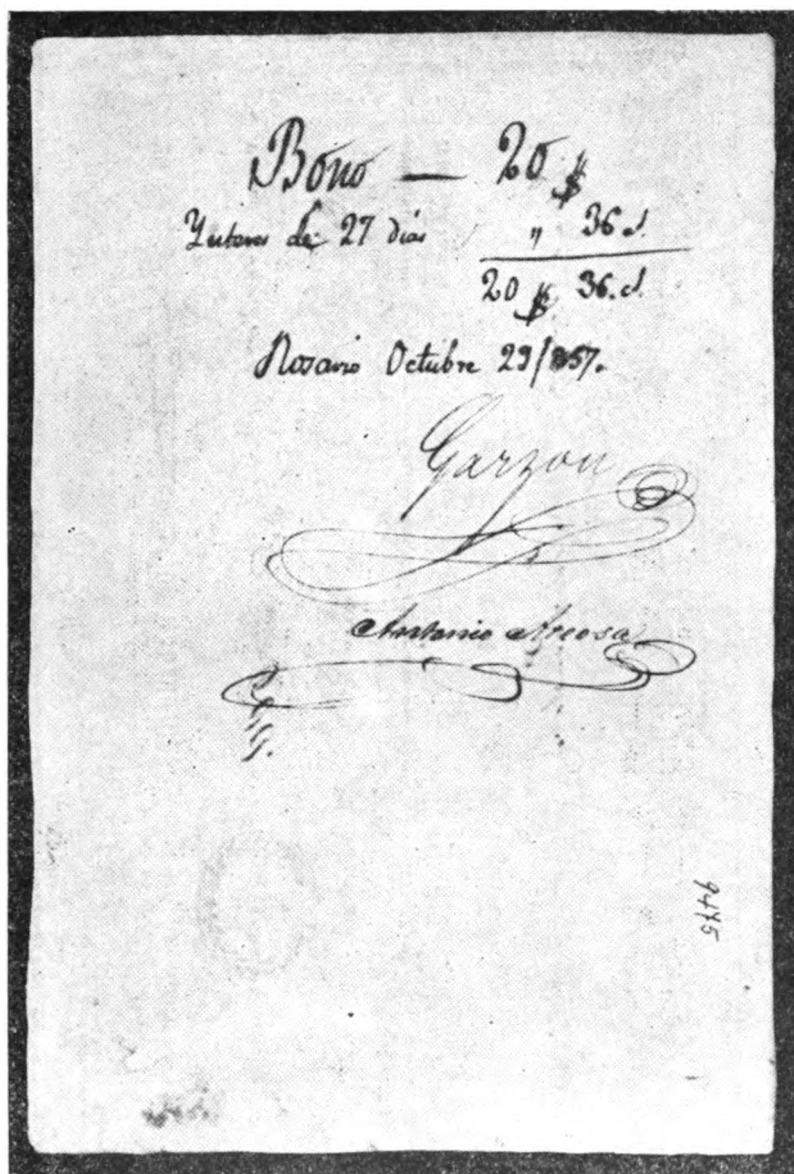 Bono — 20 $
Ynteres de 27 dias " 36 c/.
20 $ 36. c/.
Rosario Octubre 29/857.
Garzon
Antonio Areosa
G.
9475